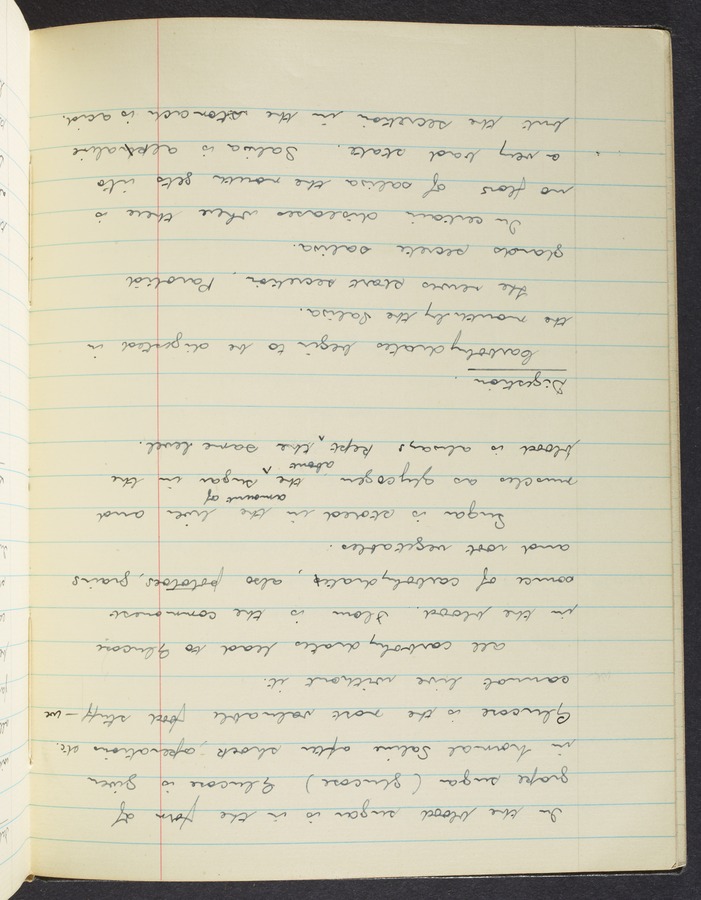 In the blood sugar is in the form of
grape sugar (glucose) Glucose is given
in Normal Saline after shock, operations etc.
Glucose is the most valuable food stuff – we
cannot live without it.
all carbohydrates lead to Glucose
in the blood. Flour is the commonest
source of carbohydrates, also potatoes, grains
and root vegetables.
Sugar is stored in the liver and
muscles as glycogen the amount of sugar in the
blood is always kept about the same level.
Digestion.
Carbohydrates begin to be digested in
the mouth by the Saliva.
the nerves start secretion. Parotid
glands secrete saliva.
In certain diseases where there is
no flow of saliva the mouth gets into
a very bad state. Saliva is alkaline
but the secretion in the stomach is acid.